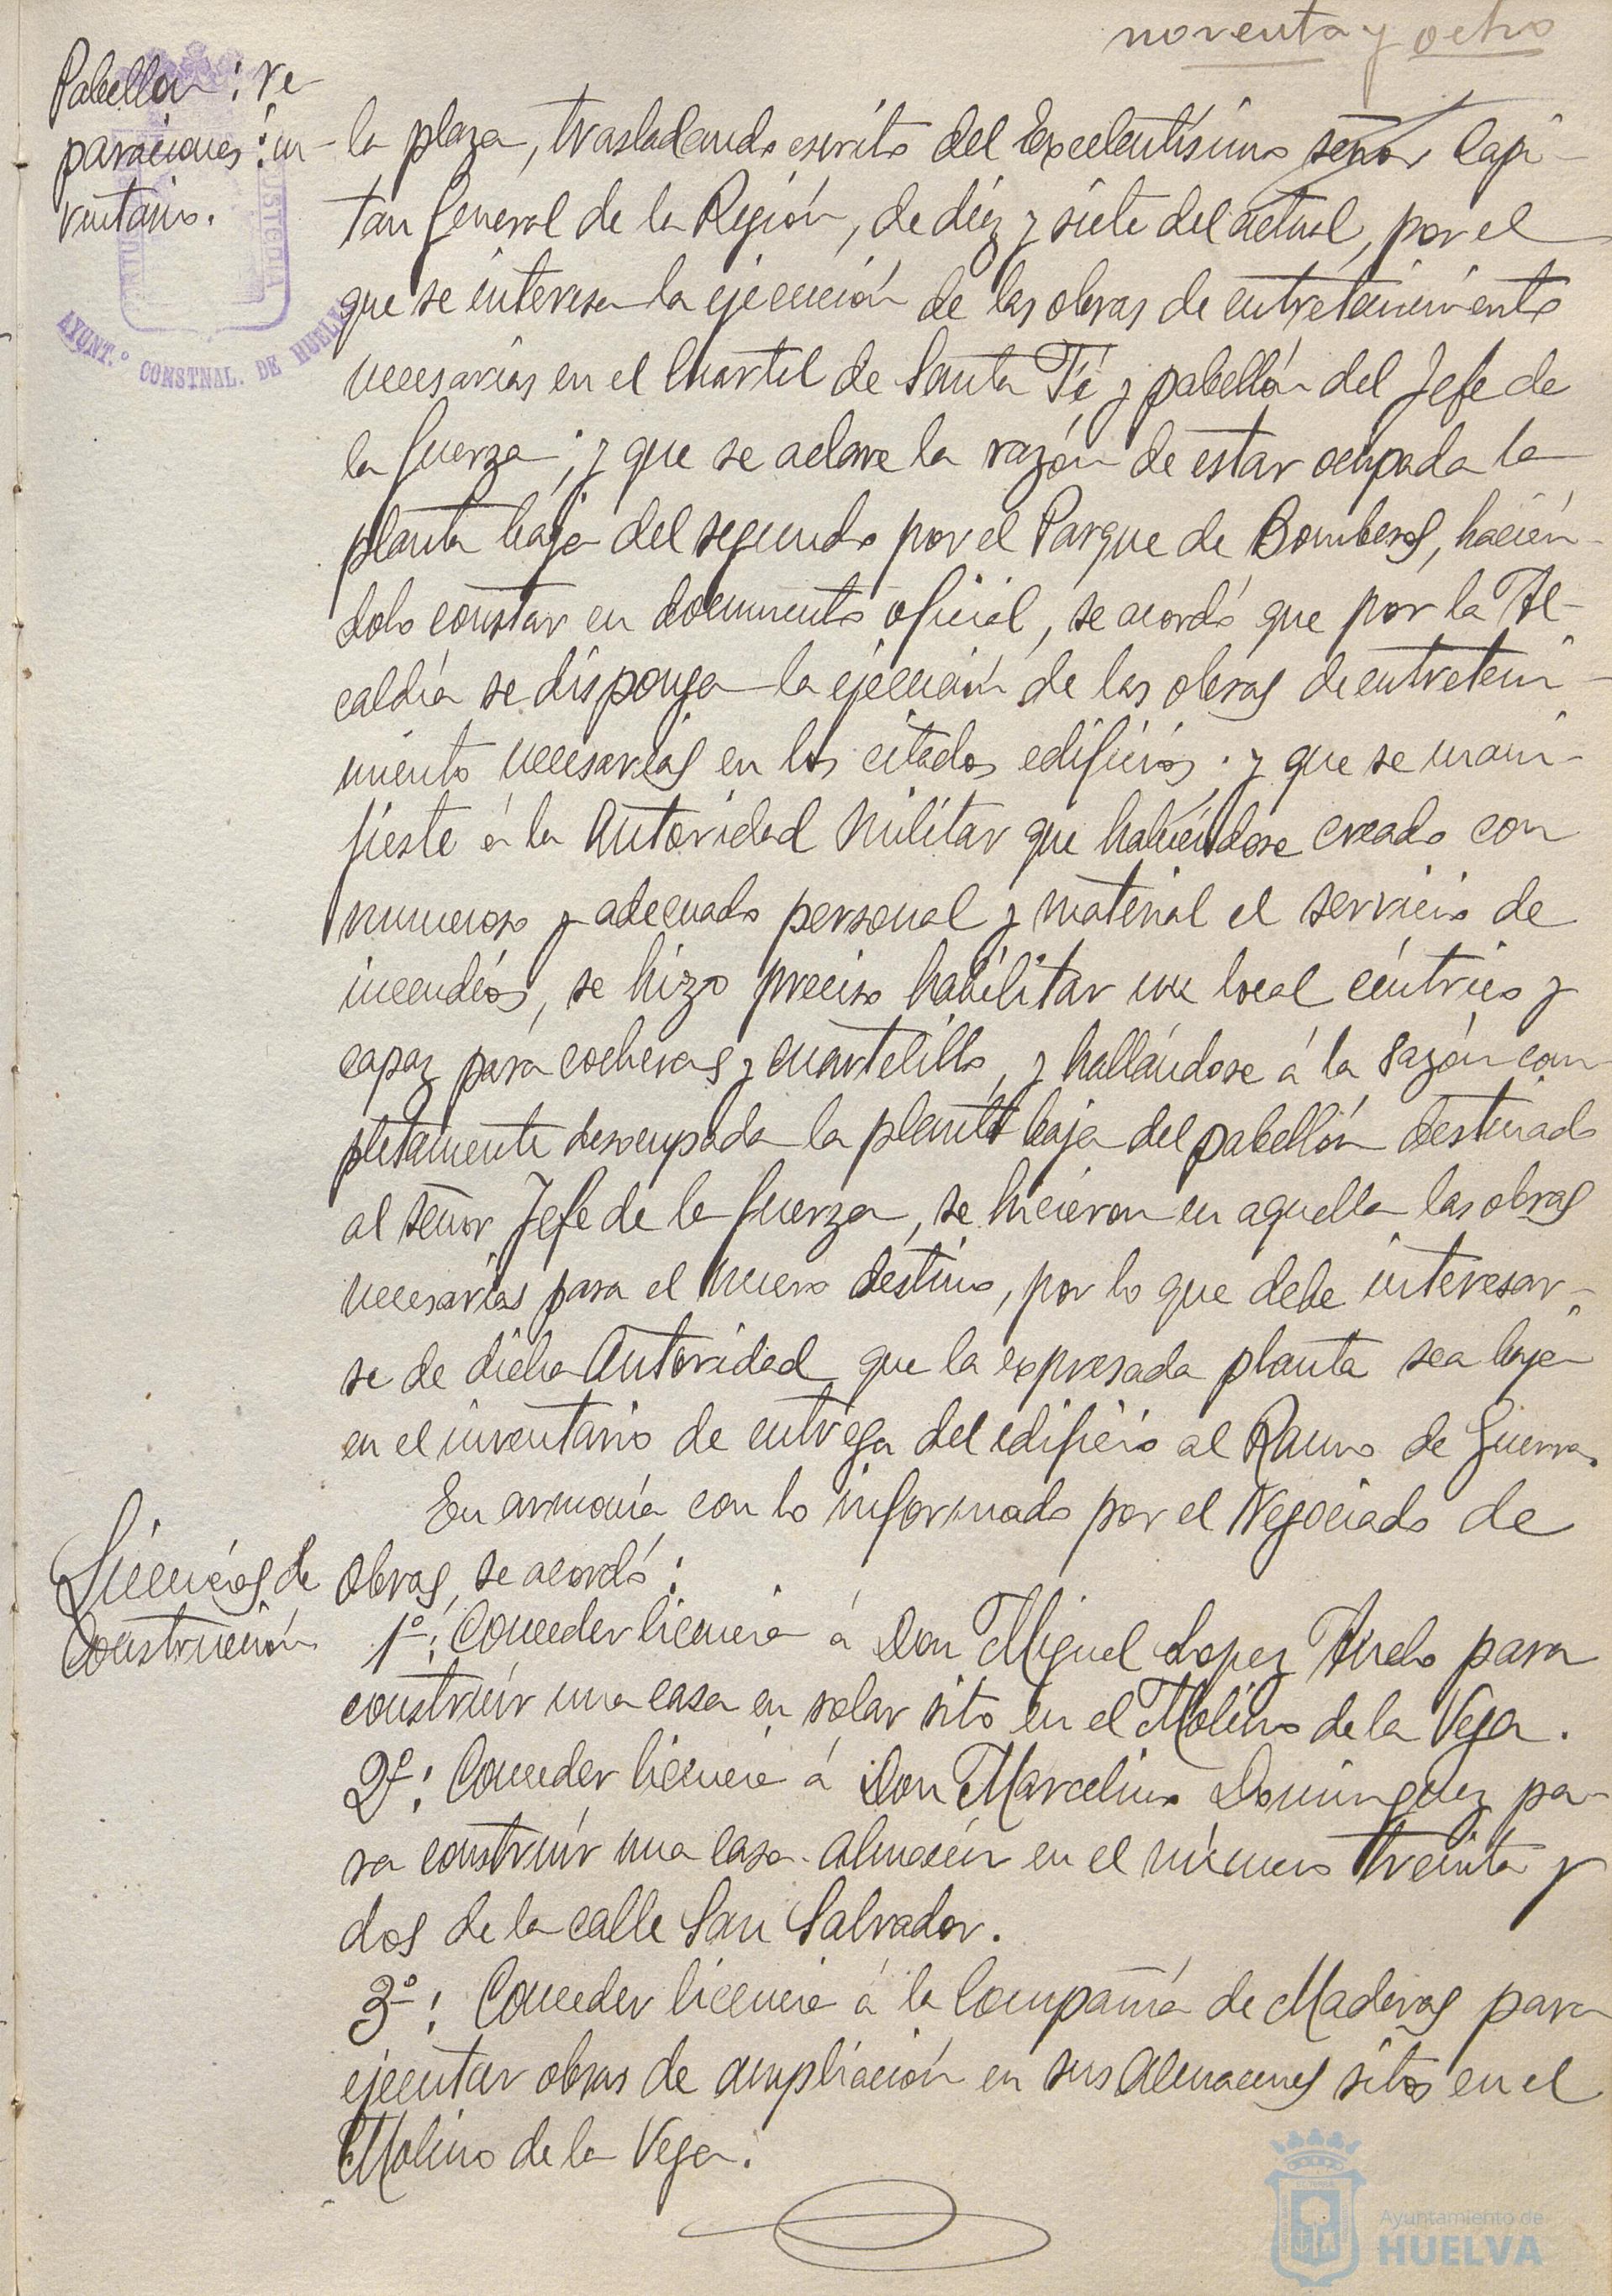 noventa y ocho
Pabellon: re-
paraciones: in-
ventario.
AYUNT.º CONSTNAL. DE HUELVA
la plaza, trasladando escrito del Excelentísimo señor Capi-
tan General de la Región, de diéz y siete del actual, por el
que se interesa la ejecución de las obras de entretenimiento
necesarias en el Cuartel de Santa Fé y pabellón del Jefe de
la fuerza; y que se aclare la razón de estar ocupada la
planta baja del segundo por el Parque de Bomberos, hacién-
dolo constar en documento oficial, se acordó que por la Al-
caldía se disponga la ejecución de las obras de entreteni-
miento necesarias en los citados edificios; y que se mani-
fieste á la Autoridad Militar que habiéndose creado con
numeroso y adecuado personal y material el servicio de
incendios, se hizo preciso habilitar un local céntrico y
capaz para cocheras y cuartelillo, y hallándose á la sazón com
pletamente desocupada la planta baja del pabellón destinado
al señor Jefe de la fuerza, se hicieron en aquella las obras
necesarias para el nuevo destino, por lo que debe interesar-
se de dicha Autoridad que la expresada planta sea baja
en el inventario de entrega del edificio al Ramo de Guerra.
En armonía con lo informado por el Negociado de
Licencias de
Construcción
Obras, se acordó:
1º: Conceder licencia á Don Miguel Lopez para
construír una casa en solar sito en el Molino de la Vega.
2º: Conceder licencia á Don Marcelino Dominguez pa-
ra construír una casa-almacén en el número treinta y
dos de la calle San Salvador.
3º: Conceder licencia á la Compañía de Maderas para
ejecutar obras de ampliación en sus almacenes sitos en el
Molino de la Vega.
Ayuntamiento de
HUELVA